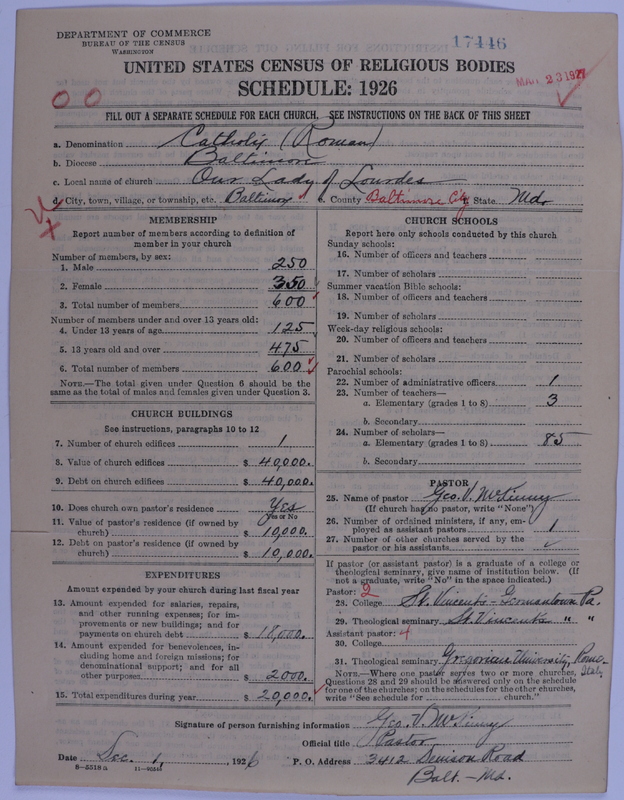 DEPARTMENT OF COMMERCE
BUREAU OF THE CENSUS
WASHINGTON
17446
UNITED STATES CENSUS OF RELIGIOUS BODIES
MAR 23 1927
SCHEDULE: 1926
FILL OUT A SEPARATE SCHEDULE FOR EACH CHURCH. SEE INSTRUCTIONS ON THE BACK OF THIS SHEET
a. Denomination Catholic (Roman)
b. Diocese Baltimore
c. Local name of church Our Lady of Lourdes
d. City, town, village, or township, etc. Baltimore e. County Baltimore City f. State Md.
MEMBERSHIP
Report number of members according to definition of
member in your church
Number of members, by sex:
1. Male 250
2. Female 350
3. Total number of members 600
Number of members under and over 13 years old:
4. Under 13 years of age 125
5. 13 years old and over 475
6. Total number of members 600
NOTE.—The total given under Question 6 should be the
same as the total of males and females given under Question 3.
CHURCH BUILDINGS
See instructions, paragraphs 10 to 12
7. Number of church edifices 1
8. Value of church edifices $ 40,000.
9. Debt on church edifices $ 40,000.
10. Does church own pastor's residence Yes
Yes or No
11. Value of pastor's residence (if owned by
church) $ 10,000.
12. Debt on pastor's residence (if owned by
church) $ 10,000.
EXPENDITURES
Amount expended by your church during last fiscal year
13. Amount expended for salaries, repairs,
and other running expenses; for im-
provements or new buildings; and for
payments on church debt $ 18,000.
14. Amount expended for benevolences, in-
cluding home and foreign missions; for
denominational support; and for all
other purposes $ 2000.
15. Total expenditures during year $ 20,000.
CHURCH SCHOOLS
Report here only schools conducted by this church
Sunday schools:
16. Number of officers and teachers
17. Number of scholars
Summer vacation Bible schools:
18. Number of officers and teachers
19. Number of scholars
Week-day religious schools:
20. Number of officers and teachers
21. Number of scholars
Parochial schools:
22. Number of administrative officers 1
23. Number of teachers—
a. Elementary (grades 1 to 8) 3
b. Secondary
24. Number of scholars—
a. Elementary (grades 1 to 8) 85
b. Secondary
PASTOR
25. Name of pastor Geo. V.
(If church has no pastor, write "None")
26. Number of ordained ministers, if any, em-
ployed as assistant pastors 1
27. Number of other churches served by the
pastor or his assistants
If pastor (or assistant pastor) is a graduate of a college or
theological seminary, give name of institution below. (If
not a graduate, write "No" in the space indicated.)
Pastor: 2
28. College St. Vincents - Germantown Pa.
29. Theological seminary St. Vincents " "
Assistant pastor: 4
30. College
31. Theological seminary Gregorian University, Rome, Italy
NOTE.—Where one pastor serves two or more churches,
Questions 28 and 29 should be answered only on the schedule
for one of the churches; on the schedules for the other churches,
write "See schedule for church."
Signature of person furnishing information Geo. V.
Official title Pastor
Date Dec. 1, 1926 P. O. Address 3412 Denison Road
8-5518a 11-90546 Balt - Md.